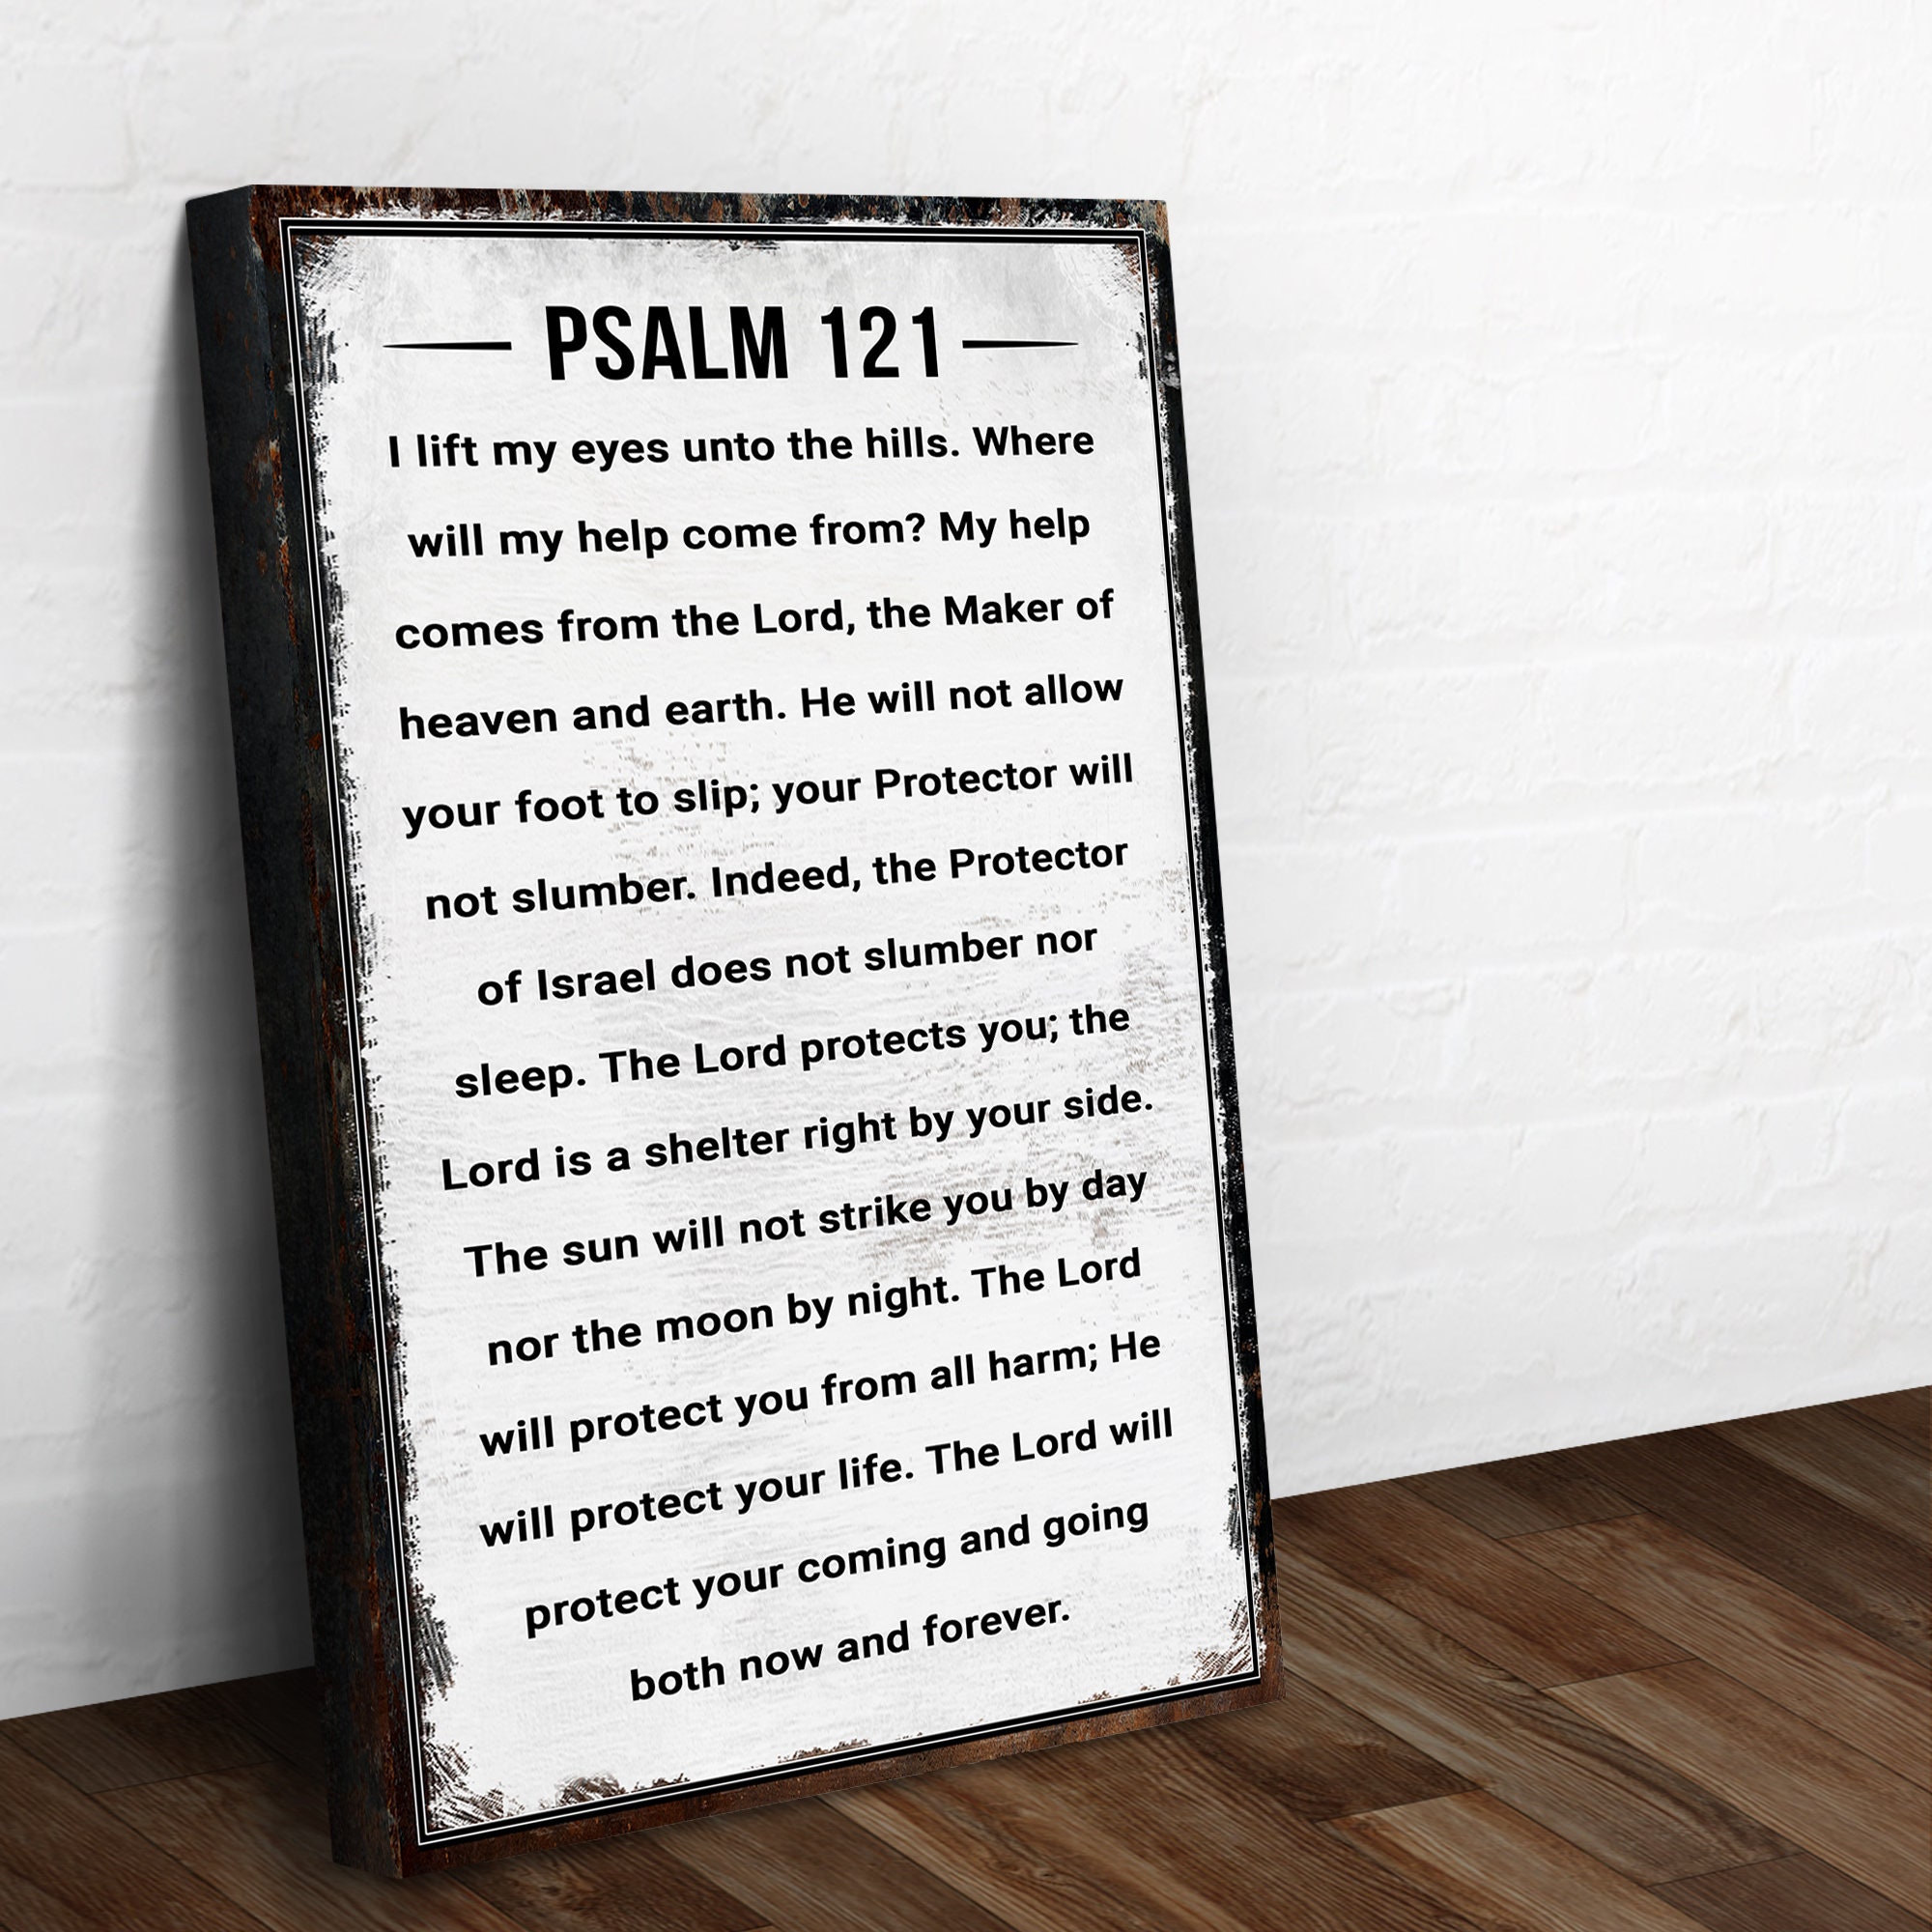 PSALM 121
I lift my eyes unto the hills. Where
will my help come from? My help
comes from the Lord, the Maker of
heaven and earth. He will not allow
your foot to slip; your Protector will
not slumber. Indeed, the Protector
of Israel does not slumber nor
sleep. The Lord protects you; the
Lord is a shelter right by your side.
The sun will not strike you by day
nor the moon by night. The Lord
will protect you from all harm; He
will protect your life. The Lord will
protect your coming and going
both now and forever.